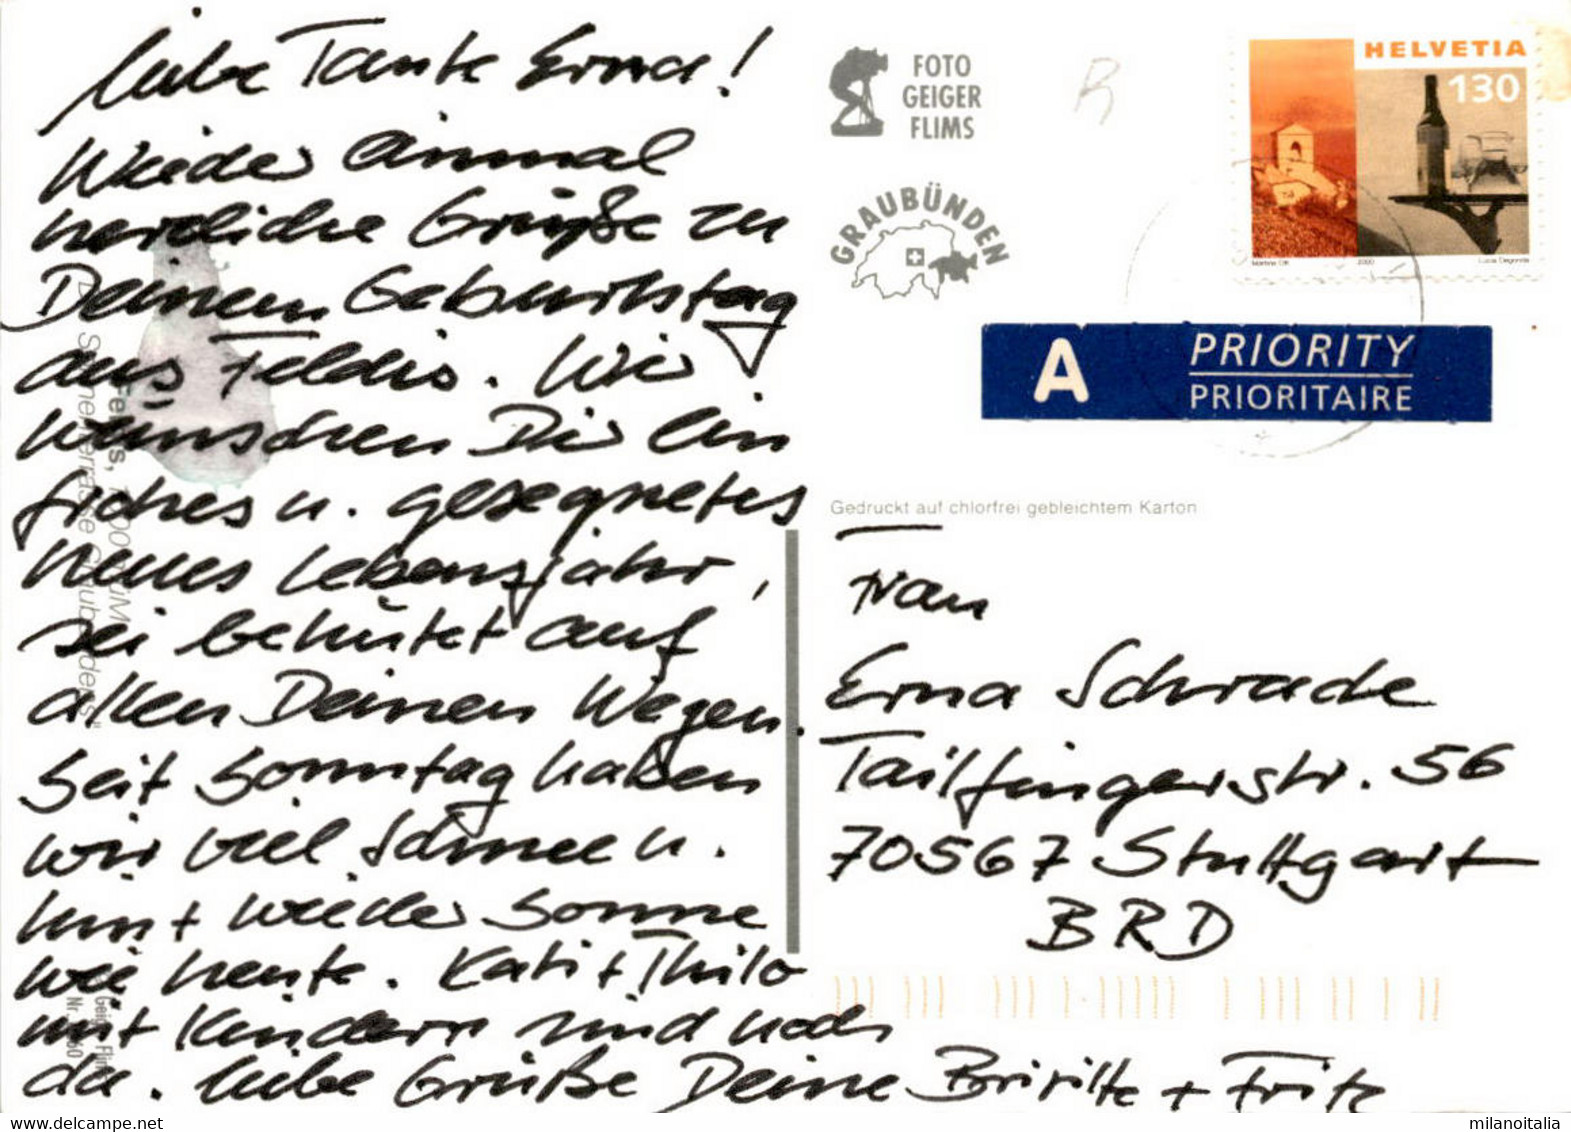 Liebe Tante Erna!
Wieder einmal
herzliche Grüße zu
Deinem Geburtstag
aus Feldis. Wir
wünschen Dir ein
frohes u. gesegnetes
neues Lebensjahr,
sei behütet auf
allen Deinen Wegen.
Seit Sonntag haben
wir viel Schnee u.
hin + wieder Sonne
wie heute. Kati + Thilo
mit Kindern sind noch
da. Liebe Grüße Deine Brigitte + Fritz
FOTO
GEIGER
FLIMS
GRAUBÜNDEN
HELVETIA
130
2000
A PRIORITY
PRIORITAIRE
Gedruckt auf chlorfrei gebleichtem Karton
Frau
Erna Schrade
Tailfingerstr. 56
70567 Stuttgart
BRD
www.delcampe.net
milanoitalia